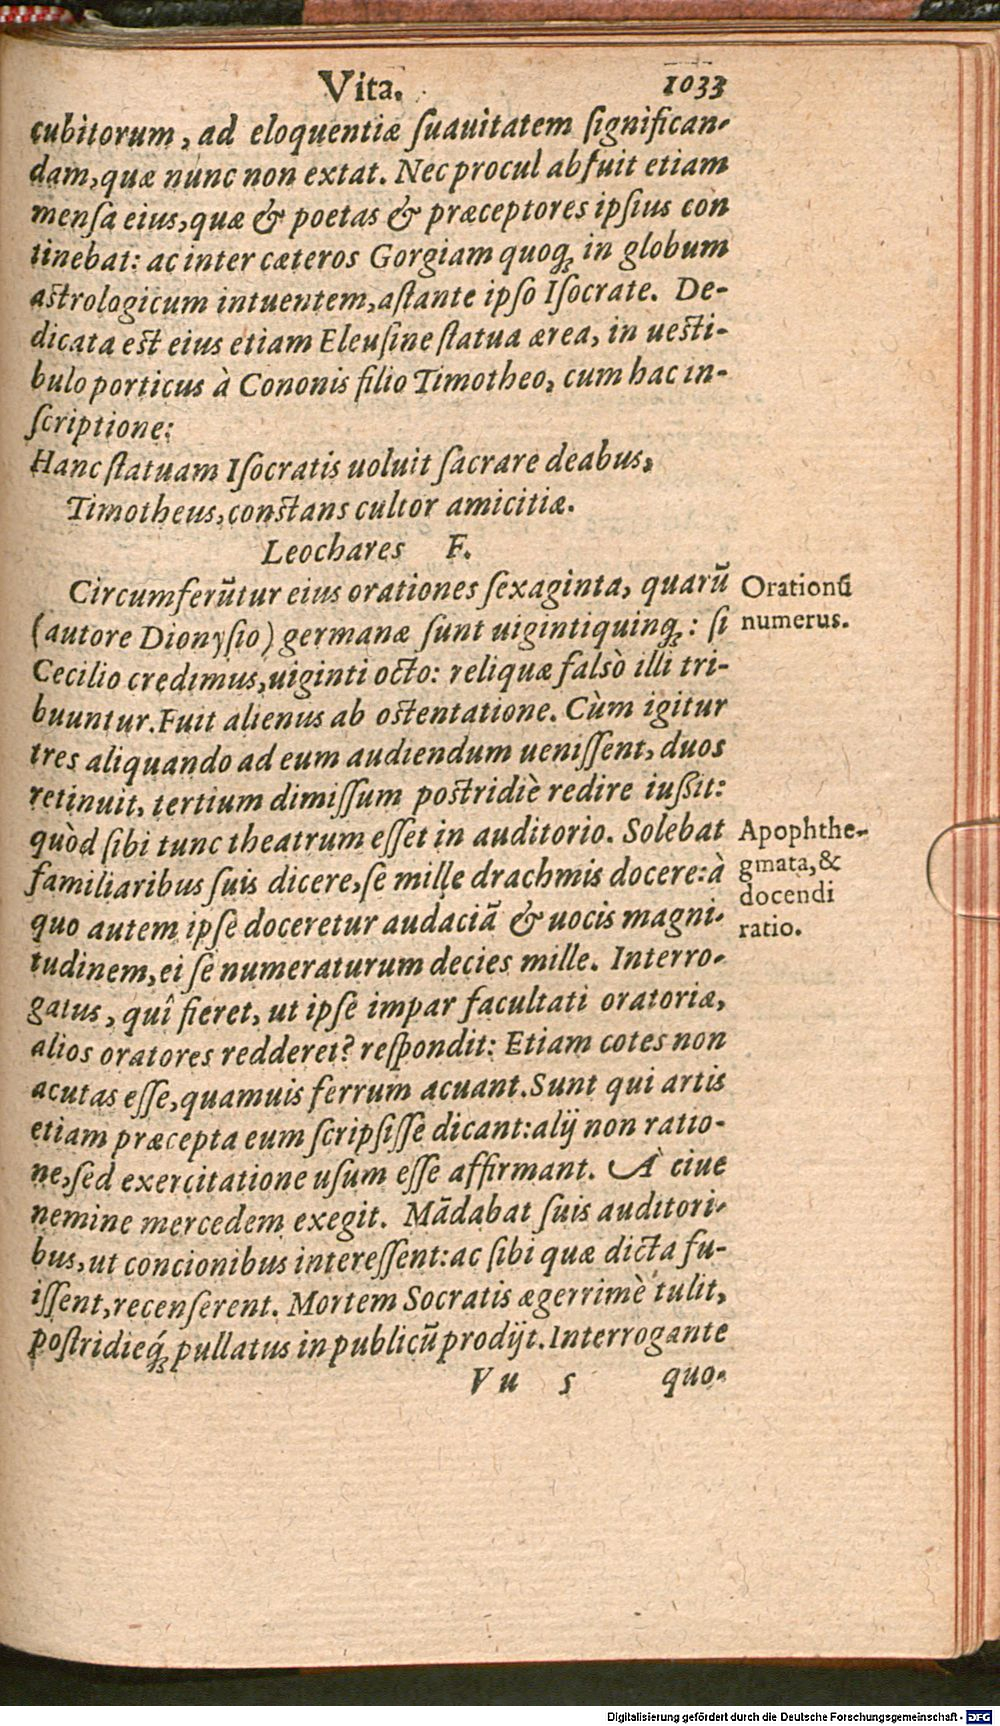 Vita. 1033
cubitorum, ad eloquentiæ ſuauitatem ſignifican-
dam, quæ nunc non extat. Nec procul abfuit etiam
menſa eius, quæ & poetas & præceptores ipſius con
tinebat: ac inter cæteros Gorgiam quoq; in globum
aſtrologicum intuentem, aſtante ipſo Iſocrate. De-
dicata eſt eius etiam Eleuſine ſtatua ærea, in ueſti-
bulo porticus à Cononis filio Timotheo, cum hac in-
ſcriptione:
Hanc ſtatuam Iſocratis uoluit ſacrare deabus,
Timotheus, conſtans cultor amicitiæ.
Leochares F.
Circumferūtur eius orationes ſexaginta, quarū
(autore Dionyſio) germanæ ſunt uigintiquinq;: ſi
Cecilio credimus, uiginti octo: reliquæ falsò illi tri-
buuntur. Fuit alienus ab oſtentatione. Cùm igitur
tres aliquando ad eum audiendum ueniſſent, duos
retinuit, tertium dimiſſum poſtridiè redire iuſsit:
quòd ſibi tunc theatrum eſſet in auditorio. Solebat
familiaribus ſuis dicere, ſe mille drachmis docere: à
quo autem ipſe doceretur audaciā & uocis magni-
tudinem, ei ſe numeraturum decies mille. Interro-
gatus, quî fieret, ut ipſe impar facultati oratoriæ,
alios oratores redderet? reſpondit: Etiam cotes non
acutas eſſe, quamuis ferrum acuant. Sunt qui artis
etiam præcepta eum ſcripſiſſe dicant: alij non ratio-
ne, ſed exercitatione uſum eſſe affirmant. À ciue
nemine mercedem exegit. Mādabat ſuis auditori-
bus, ut concionibus intereſſent: ac ſibi quæ dicta fu-
iſſent, recenſerent. Mortem Socratis ægerrimè tulit,
poſtridieq́; pullatus in publicū prodijt. Interrogante
V u 5 quo-
Orationū
numerus.
Apophthe-
gmata, &
docendi
ratio.
Digitalisierung gefördert durch die Deutsche Forschungsgemeinschaft - DFG